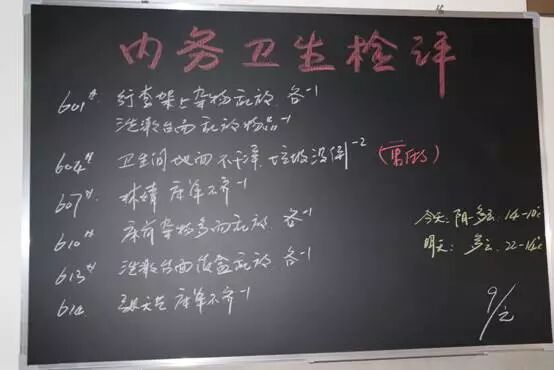 内务卫生检评
601# 行李架上杂物乱放 各-1
洗漱台面乱放物品-1
604# 卫生间地面不干净,垃圾没倒-2
607# 林婧 床单不齐-1
610# 床前杂物多而乱放 各-1
今天:阴-多云 14-10℃
613# 洗漱台面饭盒乱放 各-1
明天: 多云 22-14℃
612 床单不齐-1
9/